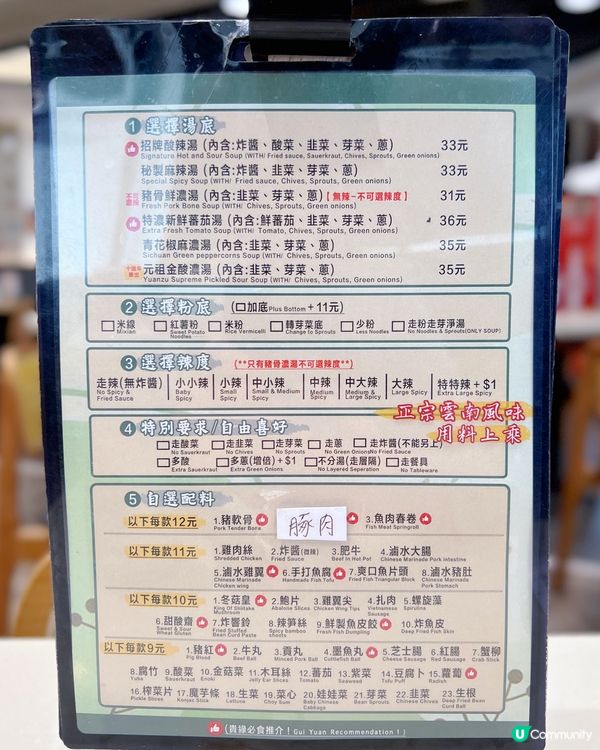 1 選擇湯底
招牌酸辣湯 (內含:炸醬、酸菜、韭菜、芽菜、蔥) 33元
Signature Hot and Sour Soup (WITH/ Fried sauce, Sauerkraut, Chives, Sprouts, Green onions)
秘製麻辣湯 (內含:炸醬、酸菜、韭菜、芽菜、蔥) 33元
Special Spicy Soup (WITH/ Fried sauce, Sauerkraut, Chives, Sprouts, Green onions)
不可選辣 豬骨鮮濃湯 (內含:韭菜、芽菜、蔥)【無辣-不可選辣度】 31元
Fresh Pork Bone Soup (WITH/ Chives, Sprouts, Green onions)
特濃新鮮蕃茄湯 (內含:鮮蕃茄、韭菜、芽菜、蔥) 36元
Extra Fresh Tomato Soup (WITH/ Chives, Sprouts, Green onions)
青花椒麻濃湯 (內含:韭菜、芽菜、蔥) 35元
Sichuan Green peppercorns Soup (WITH/ Chives, Sprouts, Green onions)
元祖金酸濃湯 (內含:韭菜、芽菜、蔥) 35元
Yuanzu Supreme Pickled Sour Soup (WITH/ Chives, Sprouts, Green onions)
2 選擇粉底 (口加底Plus Bottom + 11元)
米線 紅薯粉 米粉 轉芽菜底 少粉 走粉走芽淨湯
Mixian Sweet Potato Noodles Rice Vermicelli Change to Sprouts Less Noodles No Noodles & Sprouts(ONLY SOUP)
3 選擇辣度 (**只有豬骨濃湯不可選辣度**)
走辣(無炸醬) 小小辣 小辣 中小辣 中辣 中大辣 大辣 特特辣 + $1
No Spicy & Fried Sauce Baby Spicy Small Spicy Small & Medium Spicy Medium Spicy Medium & Large Spicy Large Spicy Extra Large Spicy
正宗雲南風味
用料上乘
4 特別要求/自由喜好
走酸菜 走韭菜 走芽菜 走蔥 走炸醬(不能另上)
No Sauerkraut No Chives No Sprouts No Green Onions No Fried Sauce
多酸 多蔥(增倍) + $1 不分湯(走層隔) 走餐具
Extra Sauerkraut Extra Green Onions No Layered Seperation No Tableware
5 自選配料
以下每款12元 1.豬軟骨 豚肉 3.魚肉春卷
Pork Tender Bone Fish Meat Springroll
以下每款11元 1.雞肉絲 2.炸醬(微辣) 3.肥牛 4.滷水大腸
Shredded Chicken Fried Sauce Beef in Hot Pot Chinese Marinade Pork Intestine
5.滷水雞翼 6.手打魚腐 7.爽口魚片頭 8.滷水豬肚
Chinese Marinade Chicken wing Handmade Fish Tofu Fried Fish Triangular Block Chinese Marinade Pork Stomach
以下每款10元 1.冬菇皇 2.鮑片 3.雞翼尖 4.扎肉 5.螺旋藻
King Of Shiitake Mushroom Abalone Slices Chicken Wing Tips Vietnamese Sausage Spirulina
6.甜酸齋 7.炸響鈴 8.辣筍絲 9.鮮製魚皮餃 10.炸魚皮
Sweet & Sour Wheat Gluten Fried Stuffed Bean Curd Paste Spicy bamboo shoots Fresh Fish Dumpling Deep Fried Fish Skin
以下每款9元 1.豬紅 2.牛丸 3.貢丸 4.墨魚丸 5.芝士腸 6.紅腸 7.蟹柳
Pig Blood Beef Ball Minced Pork Ball Cuttlefish Ball Cheese Sausage Red Sausage Crab Stick
8.腐竹 9.酸菜 10.金菇菜 11.木耳絲 12.蕃茄 13.紫菜 14.豆腐卜 15.蘿蔔
Yuba Sauerkraut Enoki Jelly Ear Slices Tomato Seaweed Tofu Puff Radish
16.榨菜片 17.魔芋條 18.生菜 19.菜心 20.娃娃菜 21.芽菜 22.韭菜 23.生根
Pickle Slices Konjac Stick Lettuce Choy Sum Baby Chinese Cabbage Bean Sprouts Chinese Chives Deep Fried Bean Curd Ball
(貴緣必食推介! Gui Yuan Recommendation!)
U Community